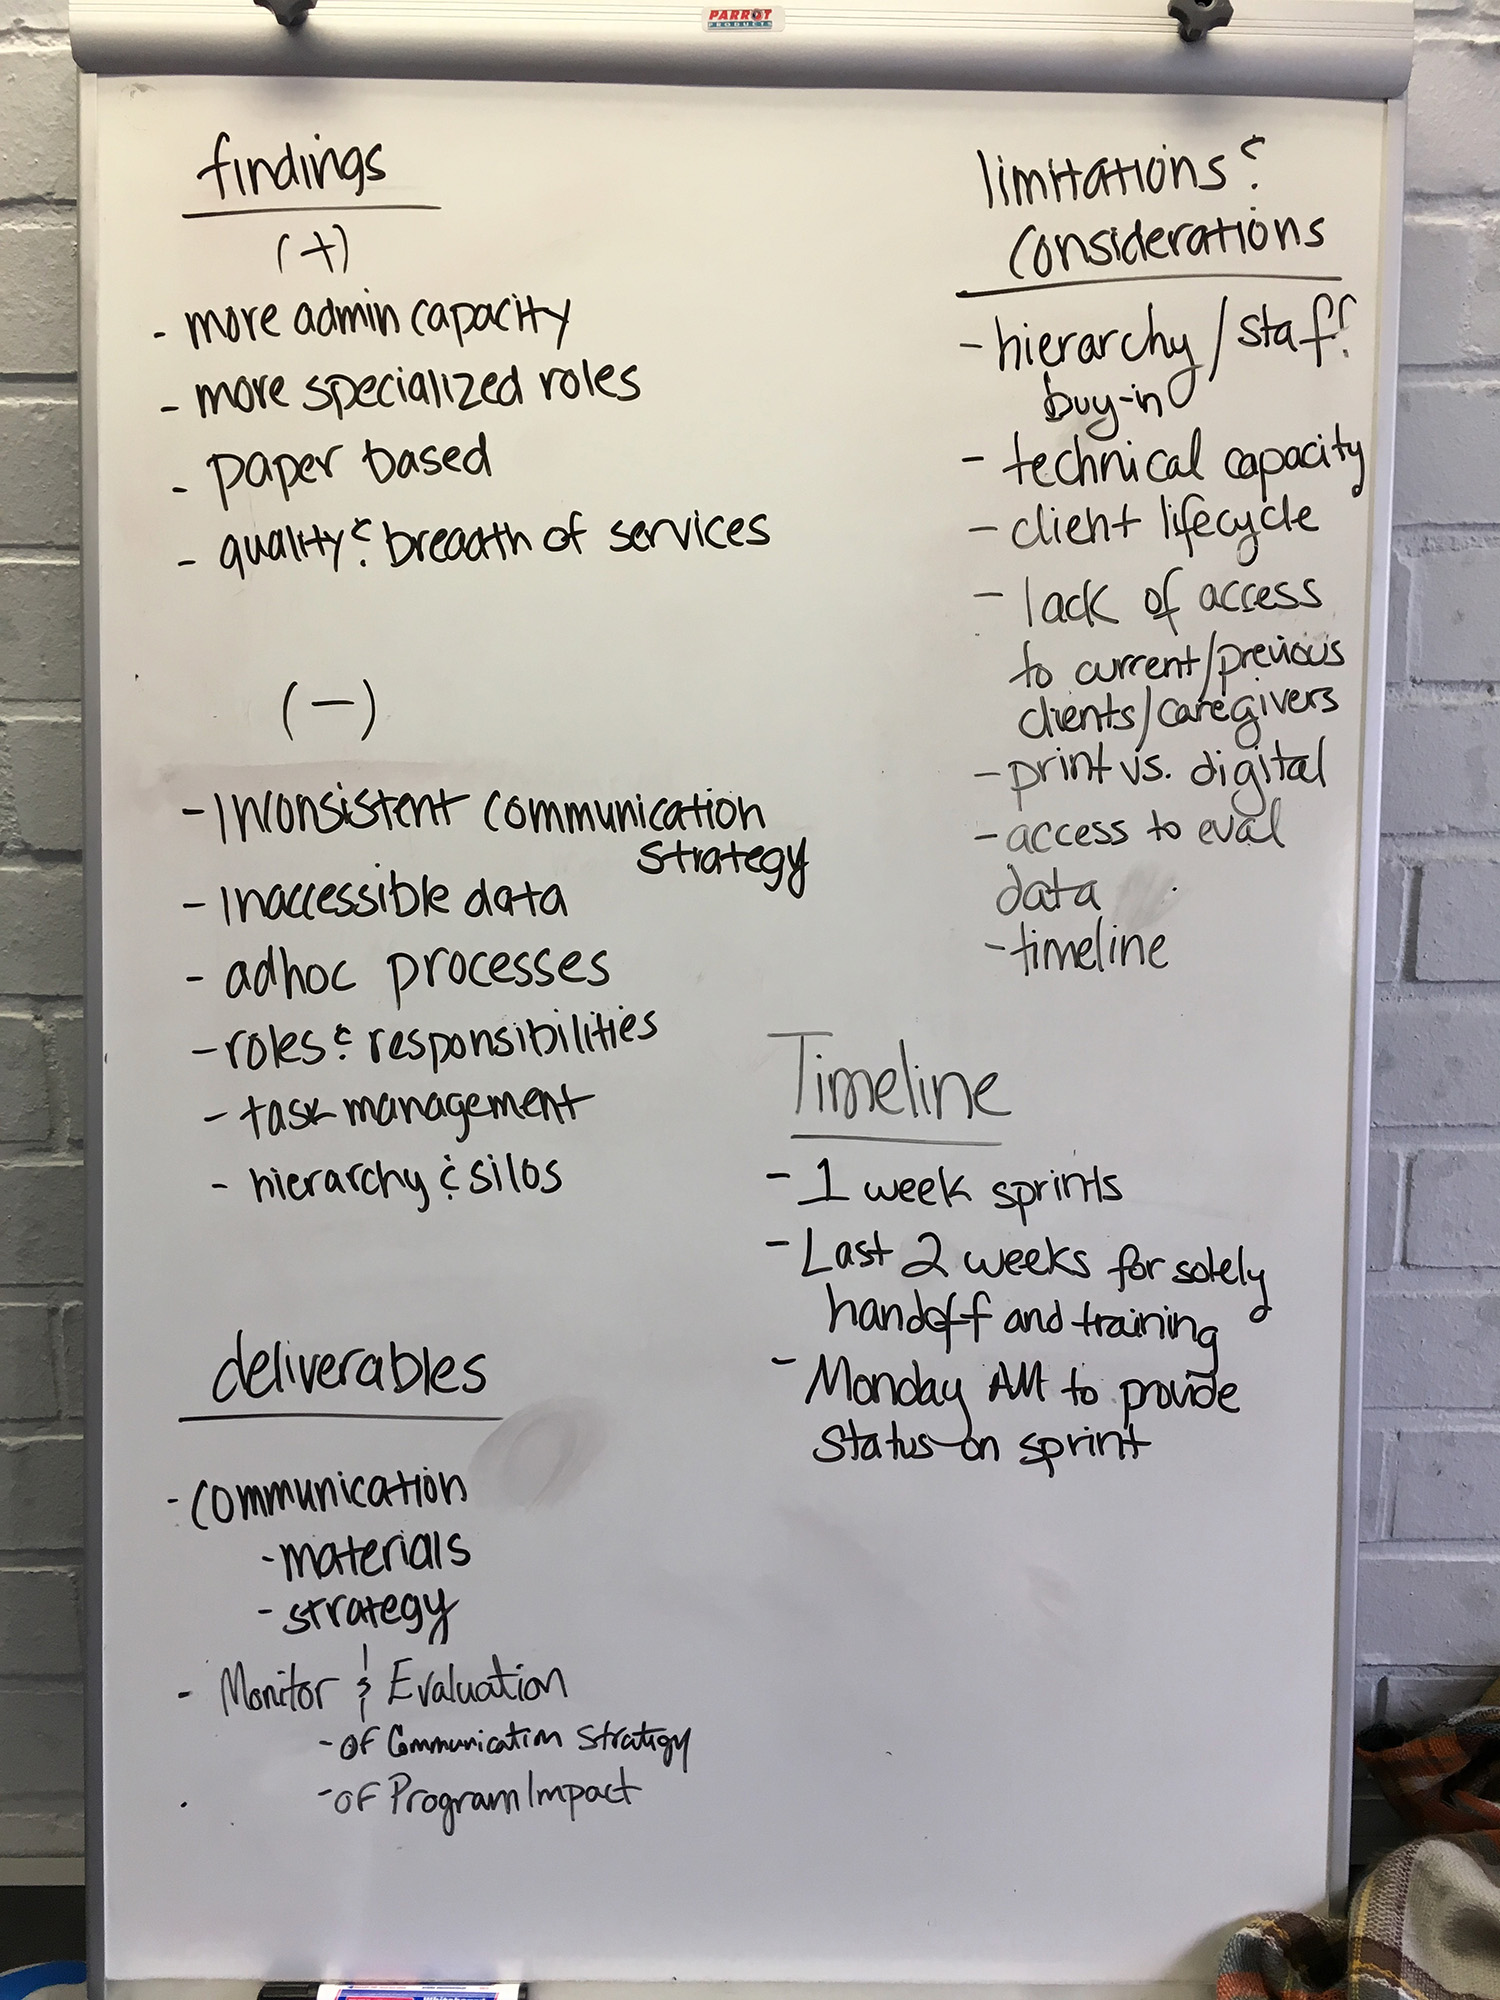 PARROT
PRODUCTS
findings
(+)
- more admin capacity
- more specialized roles
- paper based
- quality & breadth of services
(-)
- inconsistent communication
strategy
- inaccessible data
- adhoc processes
- roles & responsibilities
- task management
- hierarchy & silos
deliverables
- communication
- materials
- strategy
- Monitor & Evaluation
- of Communication Strategy
- of Program Impact
limitations &
considerations
- hierarchy / staff
buy-in
- technical capacity
- client lifecycle
- lack of access
to current/previous
clients/caregivers
- print vs. digital
- access to eval
data
- timeline
Timeline
- 1 week sprints
- Last 2 weeks for solely
handoff and training
- Monday AM to provide
status on sprint